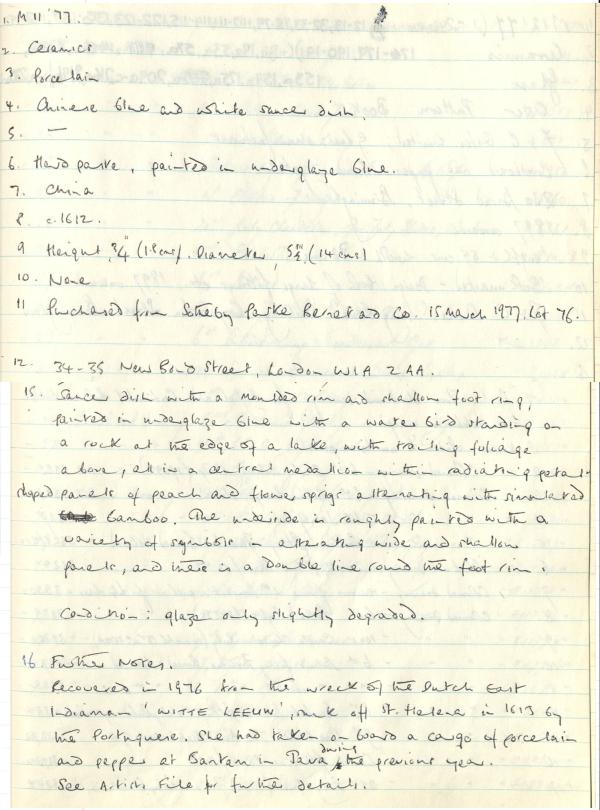 1. M 11 '77.
2. Ceramics
3. Porcelain
4. Chinese blue and white saucer dish.
5. —
6. Hard paste, painted in underglaze blue.
7. China
8. c.1612.
9 Height, ¾" (1.8 cms). Diameter, 5½ (14 cms)
10. None
11 Purchased from Sotheby Parke Bernet and Co. 15 March 1977. Lot 76.
12. 34-35 New Bond Street, London W1A 2AA.
15. Saucer dish with a moulded rim and shallow foot ring,
painted in underglaze blue with a water bird standing on
a rock at the edge of a lake, with trailing foliage
above, all in a central medallion within radiating petal-
shaped panels of peach and flower sprigs alternating with simulated
bamboo. The underside is roughly painted with a
variety of symbols in alternating wide and shallow
panels, and there is a double line round the foot rim.
Condition: glaze only slightly degraded.
16 Further Notes.
Recovered in 1976 from the wreck of the Dutch East
Indiaman 'WITTE LEEUW', sunk off St. Helena in 1613 by
the Portuguese. She had taken on board a cargo of porcelain
and pepper at Bantam in Java during the previous year.
See Artists File for further details.